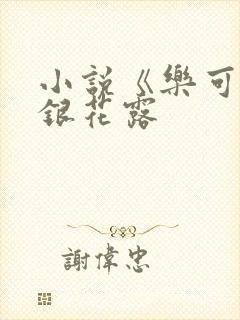 小説《樂可
銀花露
謝偉忠